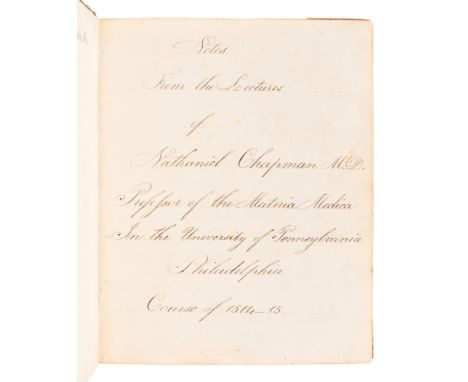 Notes
From the Lectures
of
Nathaniel Chapman M.D.
Professor of the Materia Medica
In the University of Pennsylvania
Philadelphia
Course of 1814-15.